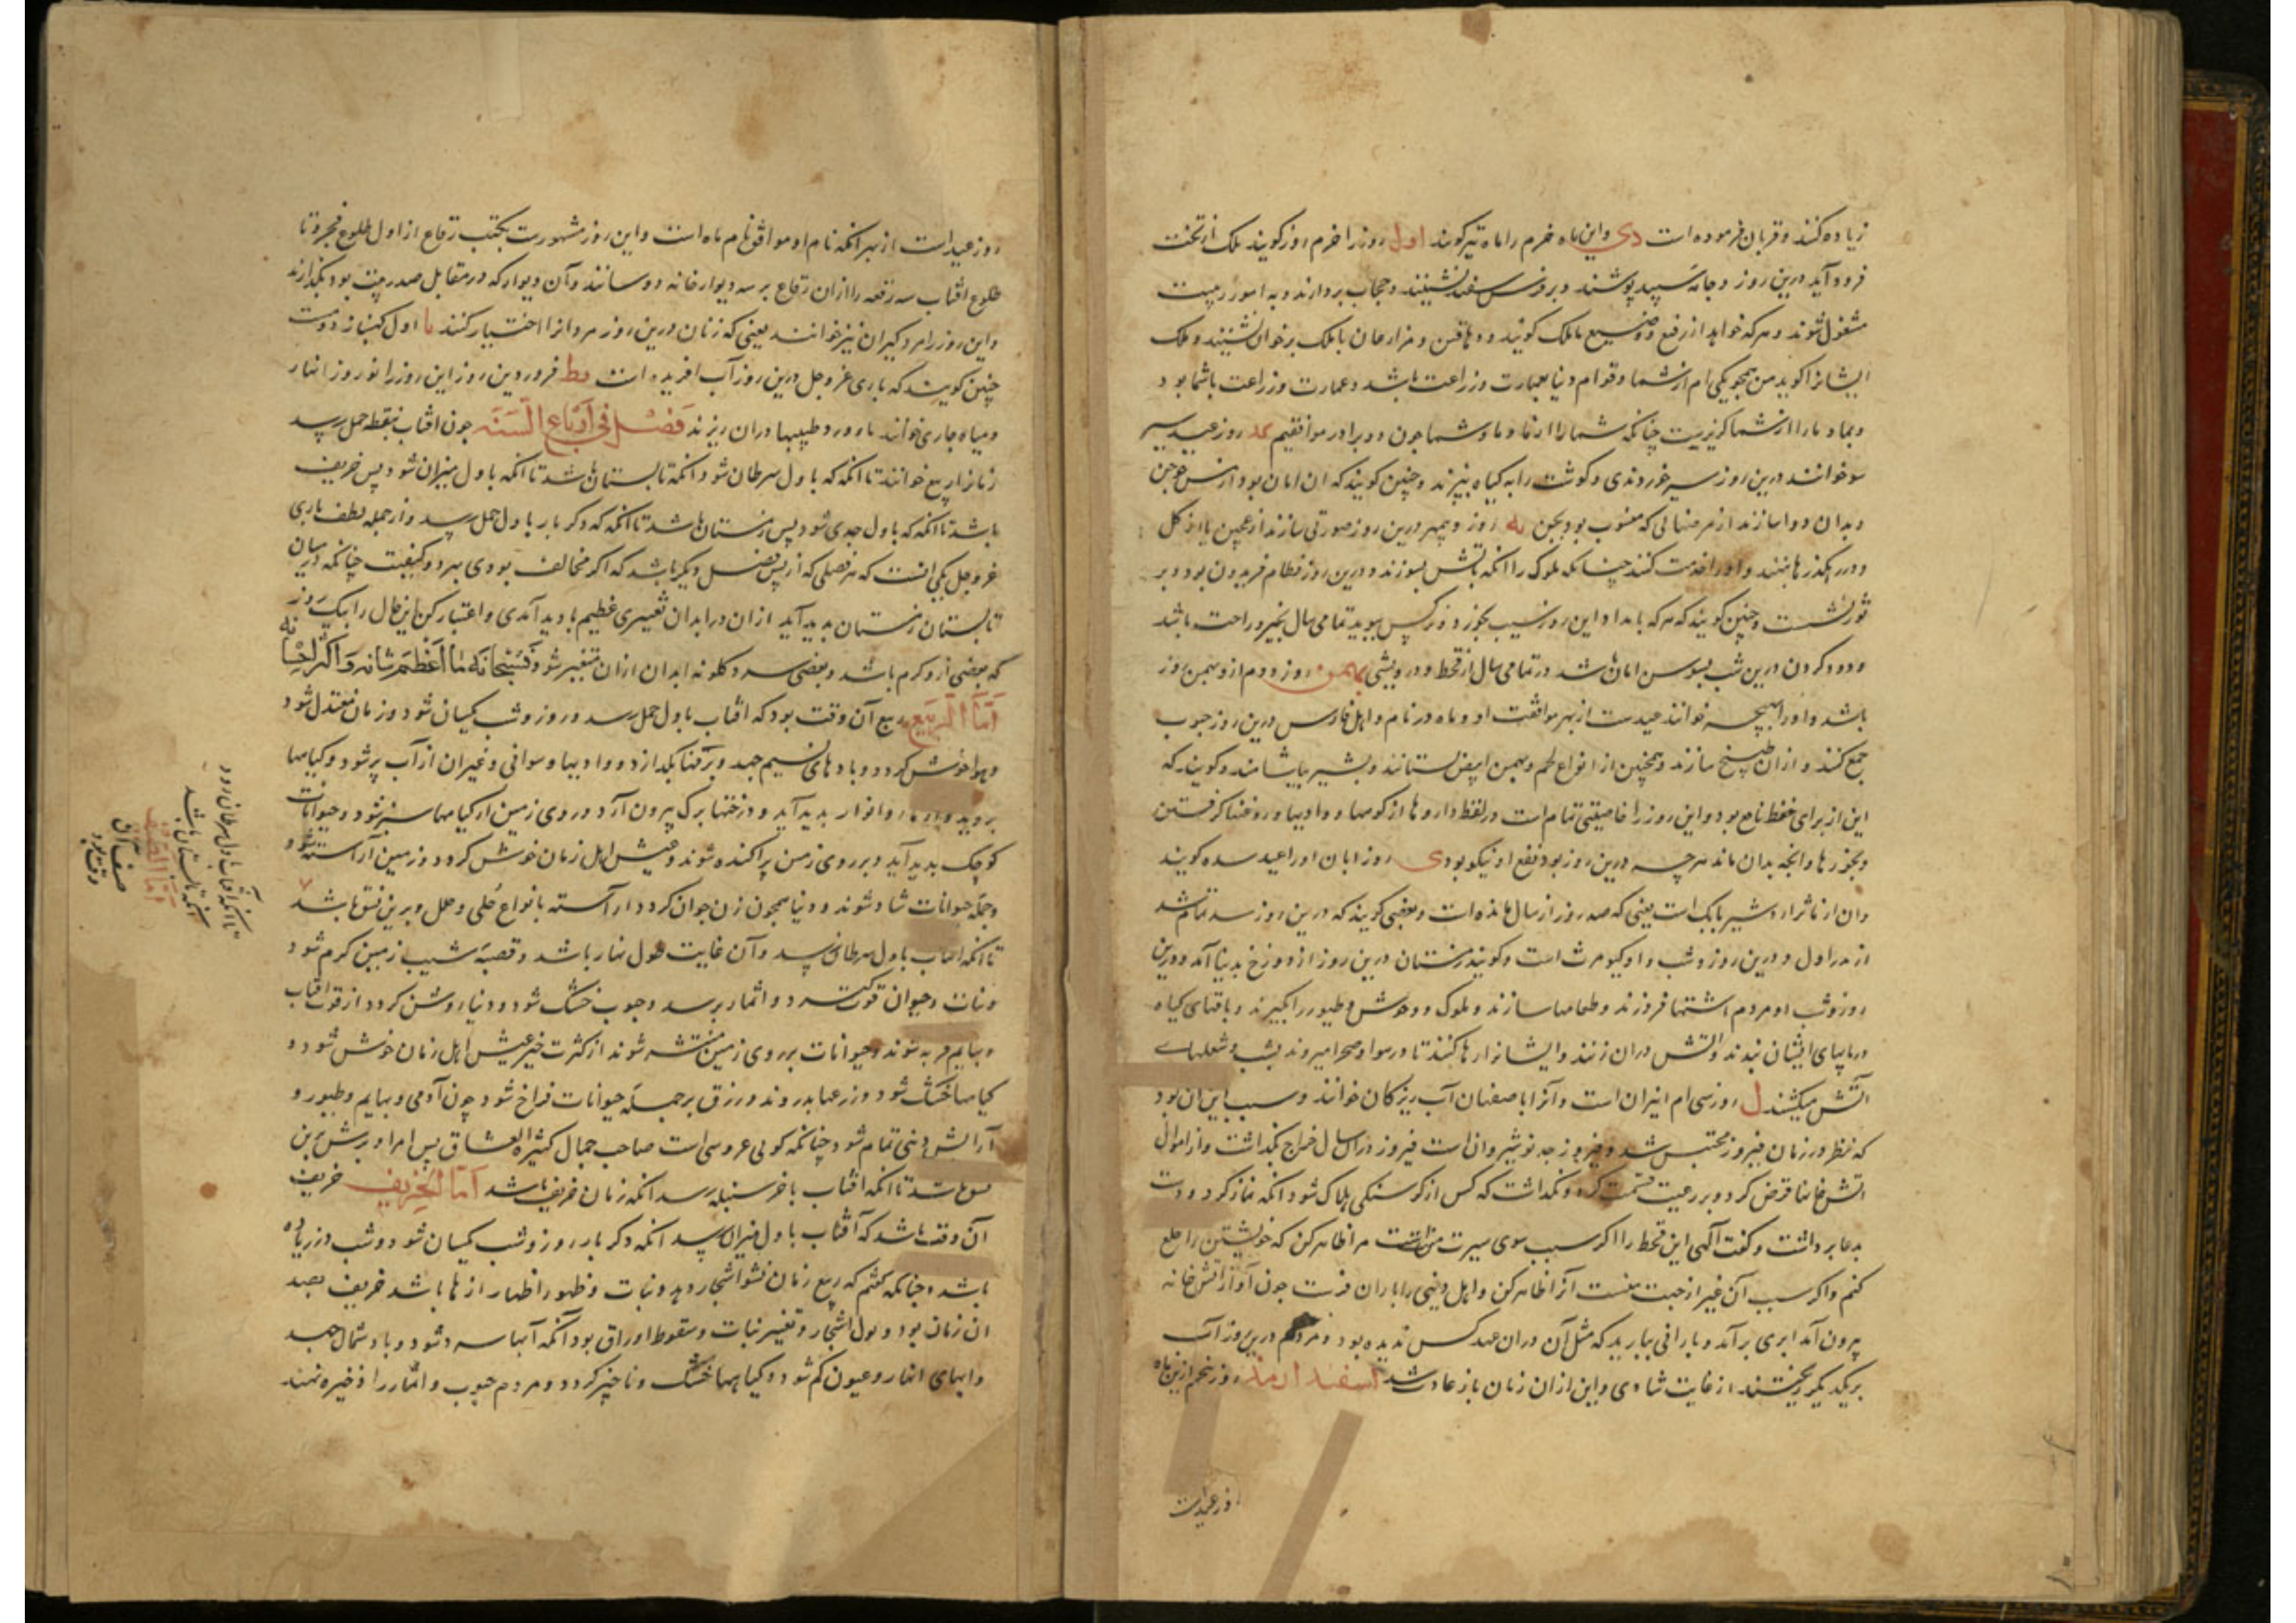 زیاده کنند و قربان فرموده است دی و این ماه خرم را ماه تیر گویند اول روز را خرم روز گویند ملک از تخت
فرود آید درین روز و جامه سپید پوشند و بر فرش سفید نشینند و حجاب بردارند و به امور رعیت
مشغول شوند و هر که خواهد از رفیع و وضیع با ملک گویند و دهاقین و مزارعان با ملک بر خوان نشینند و ملک
ایشانرا گوید من همچو یکی ام از شما و قوام دنیا بعمارت وزراعت باشد و عمارت وزراعت باشما بود
و بما و ما را از شما گریز نیست چنانکه شما را از ما و ما و شما چون دو برادر موافقیم ید روز عید سیر
سو خوانند درین روز سیر خوردندی و گوشت را به گیاه بپزند و چنین گویند که ان امان بود از شر جن
و بدان دوا سازند از مرضهائی که منسوب بود بجن یه روز دیبمهر درین روز صورتی سازند از عجین یا از گل
و در رهگذرها بنهند و او را خدمت کنند چنانکه ملوک را انگه باتش بسوزند و درین روز فطام فریدون بود و بر
ثور نشست و چنین گویند که هر که بامداد این روز سیب بخورد و نرگس ببوید تمامی سال بخیر و راحت باشد
و دود کردن درین شب بسوسن امان باشد در تمامی سال از قحط و درویشی بهمن روز دوم از و بهمن روز
باشد و او را بهمنجه خوانند عیدست از بهر موافقت او و ماه در نام و اهل فارس درین روز حبوب
جمع کنند و از ان طبیخ سازند و همچنین از انواع لحم و بهمن ابیض بستانند و بشیر بیاشامند و گویند که
این از برای حفظ نافع بود و این روز را خاصیتی تمام است در لقط داروها از کوهها و وادیها و روغنها گرفتن
و بخورها و انچه بدان ماند هر چه درین روز بود نفع او نیکو بود ی روز ابان او را عید سده گویند
و ان از ماثر اردشیر بابک است یعنی که صد روز از سال مانده است و بعضی گویند که درین روز سد تمام شد
از پدر اول و درین روز و شب و او کیومرث است و گویند زمستان درین روز از دوزخ بدنیا آمد و درین
روز و شب او مردم اتشها فروزند و طعامها سازند و ملوک و وحوش و طیور را بگیرند و باقتهای گیاه
در پایهای ایشان بندند و اتش دران زنند و ایشانرا رها کنند تا در هوا و صحرا میروند بشب و شعلهای
آتش میکشند ل روز سی ام انیران است و آنرا باصفهان آب ریزگان خوانند و سبب این ان بود
که مطر در زمان فیروز محتبس شد و فیروز جد نوشیروان است فیروز دران سال خراج بگذاشت و از اموال
اتش خانها قرض کرد و بر رعیت قسمت کرد و نگذاشت که کس از گرسنگی هلاک شود انگه نماز کرد و دست
بدعا برداشت و گفت الهی این قحط را اگر سبب سوی سیرت منست مرا ظاهر کن که خویشتن را خلع
کنم و اگر سبب آن غیر از جهت منست آنرا ظاهر کن و اهل دنیی را باران فرست چون آواز اتش خانه
بیرون آمد ابری برآمد و بارانی ببارید که مثل آن دران عهد کس ندیده بود و مردم درین روز آب
بر یکدیگر ریختند از غایت شادی و این ازان زمان باز عادت شد اسفندارمذ روز پنجم ازین ماه
روز عید است
روز عید است از بهر انکه نام او موافق نام ماه است و این روز مشهورست بکتب رقاع از اول طلوع فجر و تا
طلوع افتاب سه رقعه را از ان رقاع بر سه دیوار خانه دوسانند و آن دیوار که در مقابل صدر بیت بود بگذارند
و این روز را مردگیران نیز خوانند یعنی که زنان درین روز مردانرا اختیار کنند یا اول کهنبار دومست
چنین گویند که باری عز و جل درین روز آب افریده است یط فروردین روز این روز را نوروز انهار
و میاه جاری خوانند ماورد و طیبها دران ریزند فصل فی ارباع السنه چون افتاب بنقطه حمل رسد
زمانرا ربیع خوانند تا انگه که باول سرطان شود انگه تابستان باشد تا انگه باول میزان شود پس خریف
باشد تا انگه که باول جدی شود پس زمستان باشد تا انگه که دگر بار باول حمل رسد و از جمله لطف باری
عز و جل یکی انست که هر فصلی که از پس فصل دیگر باشد که اگر مخالف بودی بهر دو کیفیت چنانکه درمیان
تابستان زمستان پدید آید از ان در ابدان تغییری عظیم پادید آمدی و اعتبار کن این حال را بیک روز
که بعضی ازو گرم باشد و بعضی سرد و چگونه ابدان ازان متغیر شود فَسُبْحانَه ما اَعْظَمَ شانه وَاکثر احسانه
اَمّا الرَّبیع ربیع آن وقت بود که افتاب باول حمل رسد و روز و شب یکسان شود و زمان معتدل شود
و هوا خوش گردد و بادهای نسیم جهد و برفها بگدازد و وادیها و سواقی و غیران از آب پر شود و گیاهها
بروید و ازهار و انوار پدید آید و درختها برگ بیرون آرد و روی زمین از گیاهها سبز شود و حیوانات
کوچک پدید آید و بر روی زمین پراکنده شوند و عیش اهل زمان خوش گردد و زمین آراسته شود و
و جمله حیوانات شاد شوند و دنیا همچون زن جوان گردد آراسته بانواع حُلی و حلل و برین نسق باشد
تا انگه افتاب باول سرطان رسد و آن غایت طول نهار باشد و قصبه شیب زمین گرم شود
و نبات و حیوان قوت گیرد و اثمار برسد و حبوب خشک شود و دنیا روشن گردد از قوت افتاب
و بهایم فربه شوند و حیوانات بر روی زمین منتشر شوند از کثرت خیر عیش اهل زمان خوش شود و
گیاهها خشک شود و زرعها بدروند و رزق بر جمله حیوانات فراخ شود چون آدمی و بهایم و طیور و
آرایش دنیی تمام شود چنانکه گوئی عروسی است صاحب جمال کثیرة العشاق پس امر او برین
نسق باشد تا انگه افتاب باخر سنبله رسد انگه زمان خریف باشد اَمّا الخَریف خریف
آن وقت باشد که آفتاب باول میزان رسد انگه دگر بار روز و شب یکسان شود و شب در زیاده
باشد و چنانکه گفتم که ربیع زمان نشو اشجار و بدو نبات و ظهور ازهار باشد خریف بضد
ان زمان بود ذبول اشجار و تغییر نبات و سقوط اوراق بود انگه آبها سرد شود و باد شمال جهد
و ابهای انهار و عیون کم شود و گیاهها خشک و ناچیز گردد و مردم حبوب و اثمار را ذخیره نهند
تا انگه آفتاب باول سرطان رود
انگه تابستان باشد
اَمّا الصَّیف
صیف آن
وقت بود